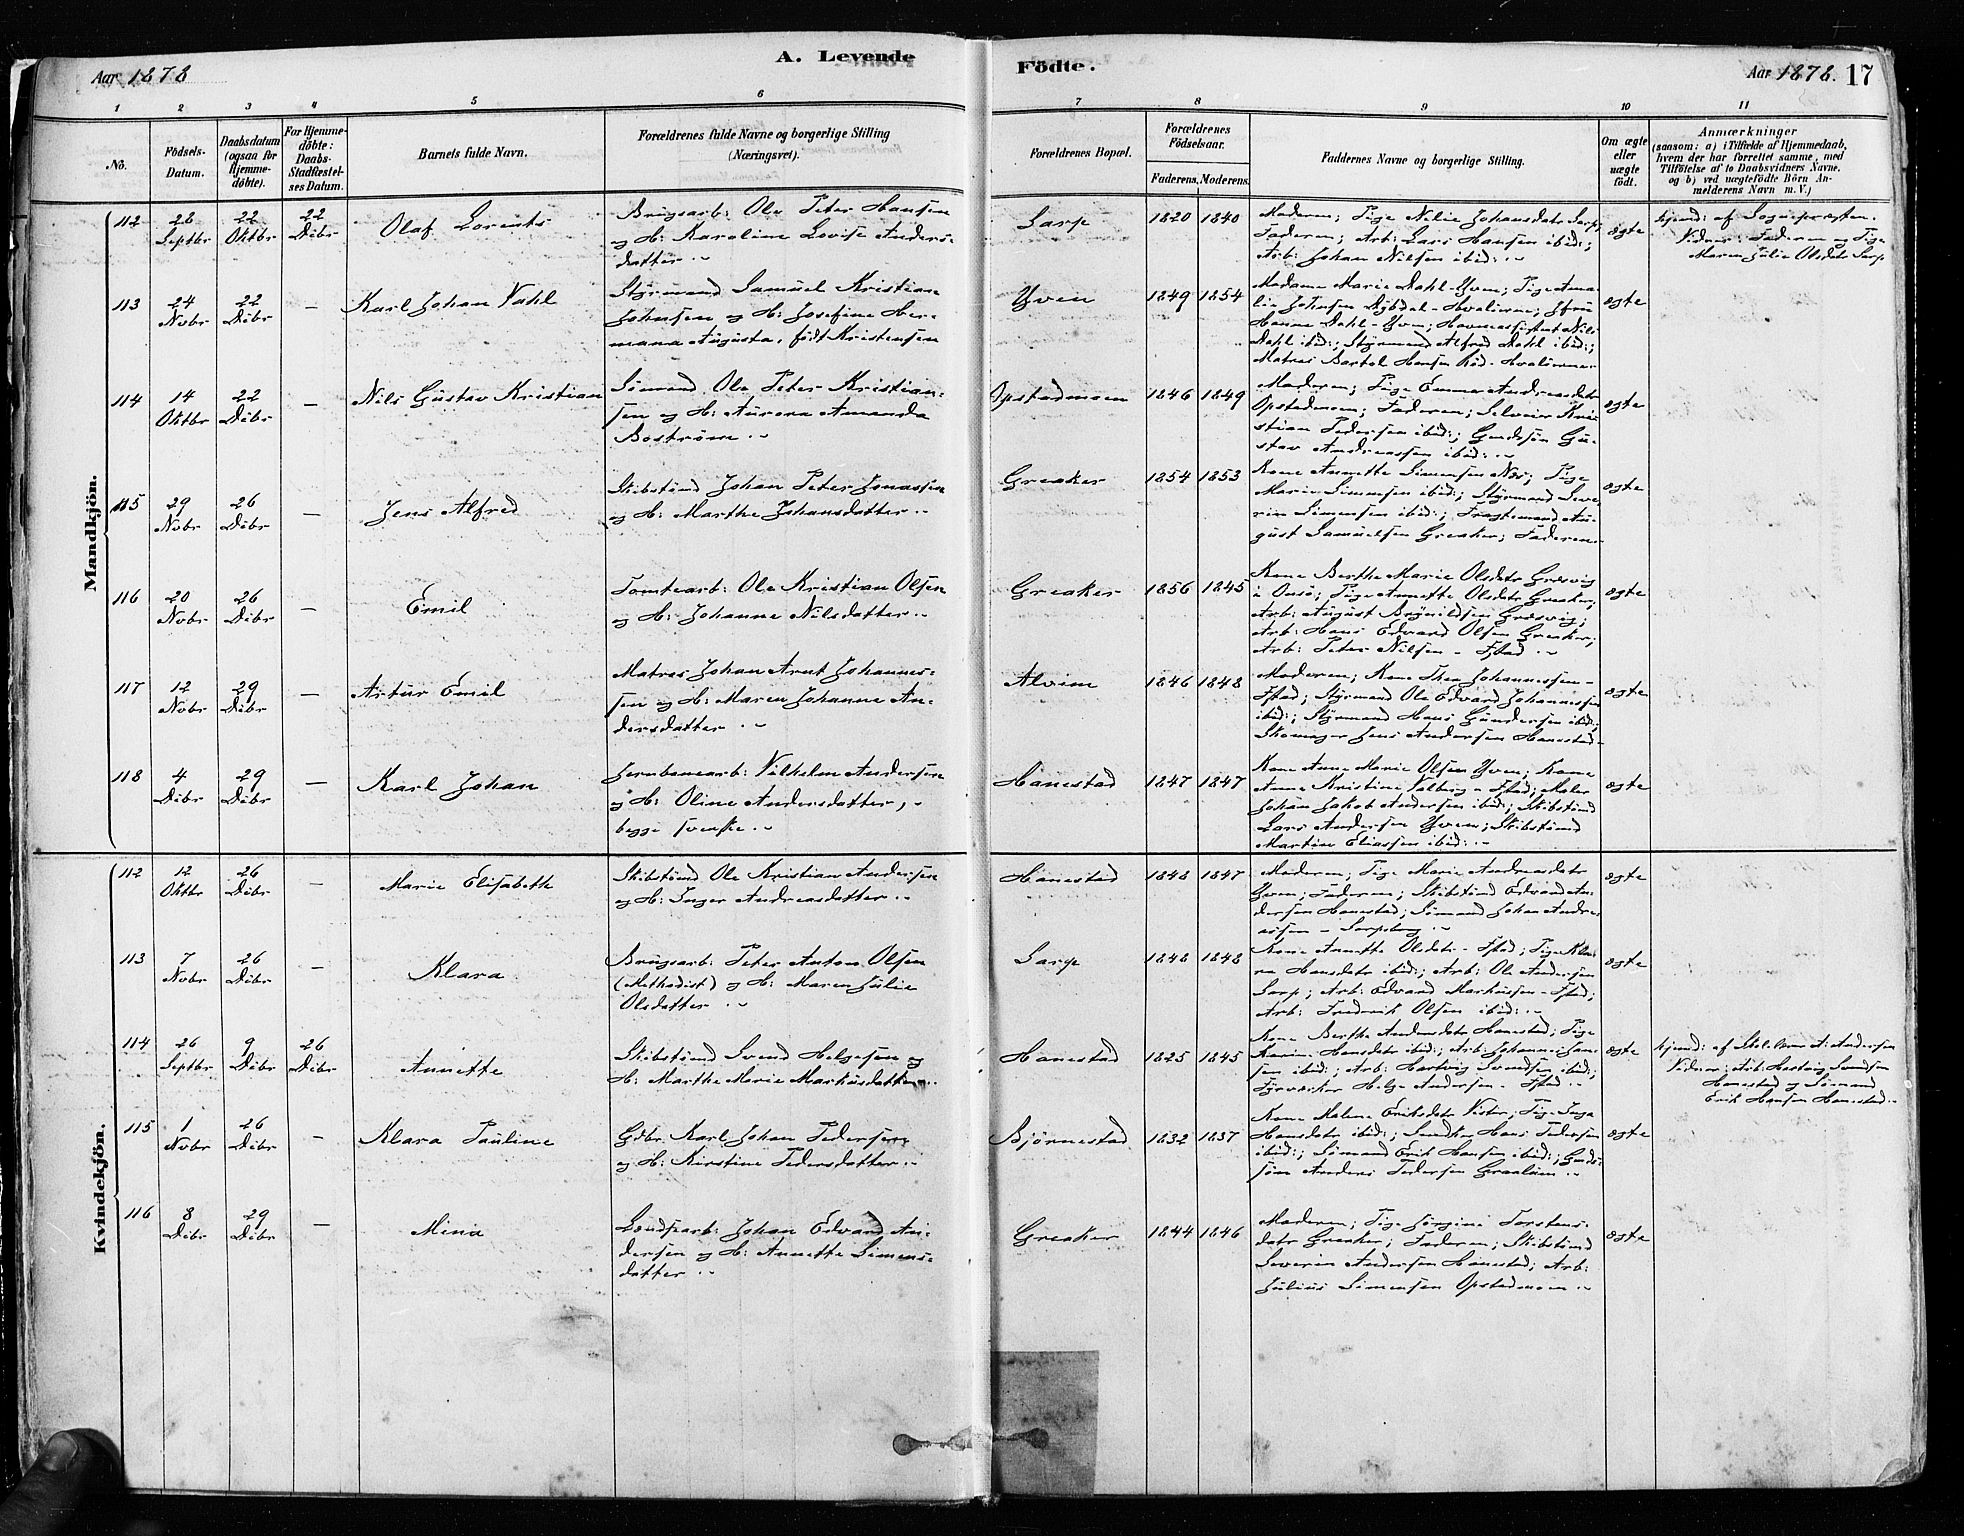 Aar 1878
A. Levende
Födte.
Aar 1878. 17
1 2 3 4 5 6 7 8 9 10 11
No.
Födsels-
Datum.
Daabsdatum
(ogsaa for
Hjemme-
döbte).
For Hjemme-
döbte:
Daabs-
Stadfæstel-
ses Datum.
Barnets fulde Navn.
Forældrenes fulde Navne og borgerlige Stilling
(Næringsvei).
Forældrenes Bopæl.
Forældrenes
Födselsaar.
Faderens. Moderens.
Faddernes Navne og borgerlige Stilling.
Om ægte
eller
uægte
födt.
Anmærkninger
(saasom: a) i Tilfælde af Hjemmedaab,
hvem der har forrettet samme, med
Tilföielse af to Daabsvidners Navne.
og b) ved uægtefödte Börn An-
melderens Navn m. V.)
Mandkjön.
112 28 Septbr 22 Oktbr 22 Dcbr
Olaf Lorents
Brugsarb: Ole Peter Hansen
og H: Karoline Lovise Anders-
datter
Sarp 1820 1840
Moderen; Pige Nelie Johansdatr Sarp;
Faderen; Arb: Lars Hansen ibid:;
Arb: Johan Nilsen ibid:
ægte
hjemd: af Sognepræsten.
Vidner: Faderen og Pige
Maren Julie Olsdatr Sarp
113 24 Novbr 22 Dcbr —
Karl Johan Dahl
Styrmand Samuel Kristian
Johnsen og H: Josefine Her-
mana Augusta, født Kristensen
Yven 1849 1854
Madame Marie Dahl-Yven; Pige Ama-
lie Johnsen Dybdal-Hvaløerne; Jfru
Hanne Dahl-Yven; Havneassistent Nils
Dahl ibid:; Styrmand Alfred Dahl ibid:;
Matros Bartol Hansen Rød-Hvaløerne
ægte
114 14 Oktbr 22 Dcbr —
Nils Gustav Kristian
Sømand Ole Peter Kristian-
sen og H: Aurora Amanda
Bostrøm
Opstadmoen 1846 1849
Moderen; Pige Emma Andreasdatr
Opstadmoen; Faderen; Selveier Kri-
stian Pedersen ibid:; Gaardssøn Gu-
stav Andreassen ibid:
ægte
115 29 Novbr 26 Dcbr —
Jens Alfred
Skibstømd Johan Peter Jonassen
og H: Marthe Johansdatter
Greaker 1854 1853
Kone Annette Simensen Næs; Pige
Marie Simensen ibid:; Styrmand Seve-
rin Simensen ibid:; Fragtemand Au-
gust Samuelsen Greaker; Faderen
ægte
116 20 Novbr 26 Dcbr —
Emil
Tomtearb: Ole Kristian Olsen
og H: Johanne Nilsdatter
Greaker 1856 1845
Kone Berthe Marie Olsdatr Græsvig
i Onsø; Pige Annette Olsdatr Greaker;
Arb: August Brynildsen Græsvig;
Arb: Hans Edvard Olsen Greaker;
Arb: Peter Nilsen – Fstad
ægte
117 12 Novbr 29 Dcbr —
Artur Emil
Matros Johan Arnt Johannes-
sen og H: Maren Johanne An-
dersdatter
Alvim 1846 1848
Moderen; Kone Thea Johannessen –
Fstad; Styrmand Ole Edvard Johannessen
ibid:; Styrmand Hans Gundersen ibid:;
Skomager Jens Andersen Hanestad
ægte
118 4 Dcbr 29 Dcbr —
Karl Johan
Jernbanearb: Vilhelm Andersen
og H: Oline Andersdatter,
begge svenske
Hanestad 1847 1847
Kone Anne Marie Olsen Yven; Kone
Anne Kristine Valberg – Fstad; Maler
Johan Jakob Andersen ibid:; Skibstømd
Lars Andersen Yven; Skibstømd
Martin Eliassen ibid:
ægte
Kvindekjön.
112 12 Oktbr 26 Dcbr —
Marie Elisabeth
Skibstømd Ole Kristian Andersen
og H: Inger Andreasdatter
Hanestad 1848 1847
Moderen; Pige Marie Andreasdatr
Yven; Faderen; Skibstømd Edvard An-
dersen Hanestad; Sømand Johan Andre-
assen – Sarpsborg
ægte
113 7 Novbr 26 Dcbr —
Klara
Brugsarb: Peter Anton Olsen
(Methodist) og H: Maren Julie
Olsdatter
Sarp 1848 1848
Kone Annette Olsdatr – Fstad; Pige Kla-
ra Hansdatr ibid:; Arb: Ole Andersen
Sarp; Arb: Edvard Markussen – Fstad;
Arb: Fredrik Olsen ibid:
ægte
114 26 Septbr 9 Dcbr 26 Dcbr
Annette
Skibstømd Svend Helgesen og
H: Marthe Marie Markusdatter
Hanestad 1825 1845
Kone Berthe Andersdatr Hanestad; Pige
Karine Hansdatr ibid:; Arb: Johannes Jan-
sen ibid:; Arb: Hartvig Svendsen ibid:;
Fyrværker Helge Andersen – Fstad
ægte
hjemd: af Skolelærer A: Andersen
Vidner: Arb: Hartvig Svendsen
Hanestad og Sømand
Erik Hansen Hanestad
115 1 Novbr 26 Dcbr —
Klara Pauline
Gdbr. Karl Johan Pedersen
og H: Kirstine Pedersdatter
Bjørnestad 1832 1837
Kone Malene Eriksdatr Vister; Pige Inga
Hansdatr ibid:; Hans Pedersen
ibid:; Sømand Erik Hansen ibid:; Gaards-
søn Anders Pedersen Graalum
ægte
116 8 Dcbr 29 Dcbr —
Mina
Landsarb: Johan Edvard An-
dersen og H: Annette Simens-
datter
Greaker 1844 1846
Moderen; Pige Jørgine Torstens-
datr Greaker; Faderen; Skibstømd
Severin Andersen Hanestad; Arb:
Julius Simensen Opstadmoen
ægte